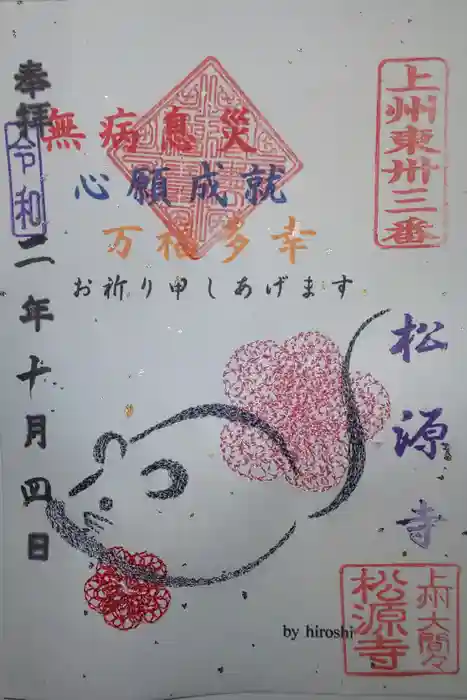 上州東丗三番
松源寺
上州大間々
松源寺
無病息災
心願成就
万福多幸
お祈り申しあげます
奉拝
令和二年十月四日
by hiroshi